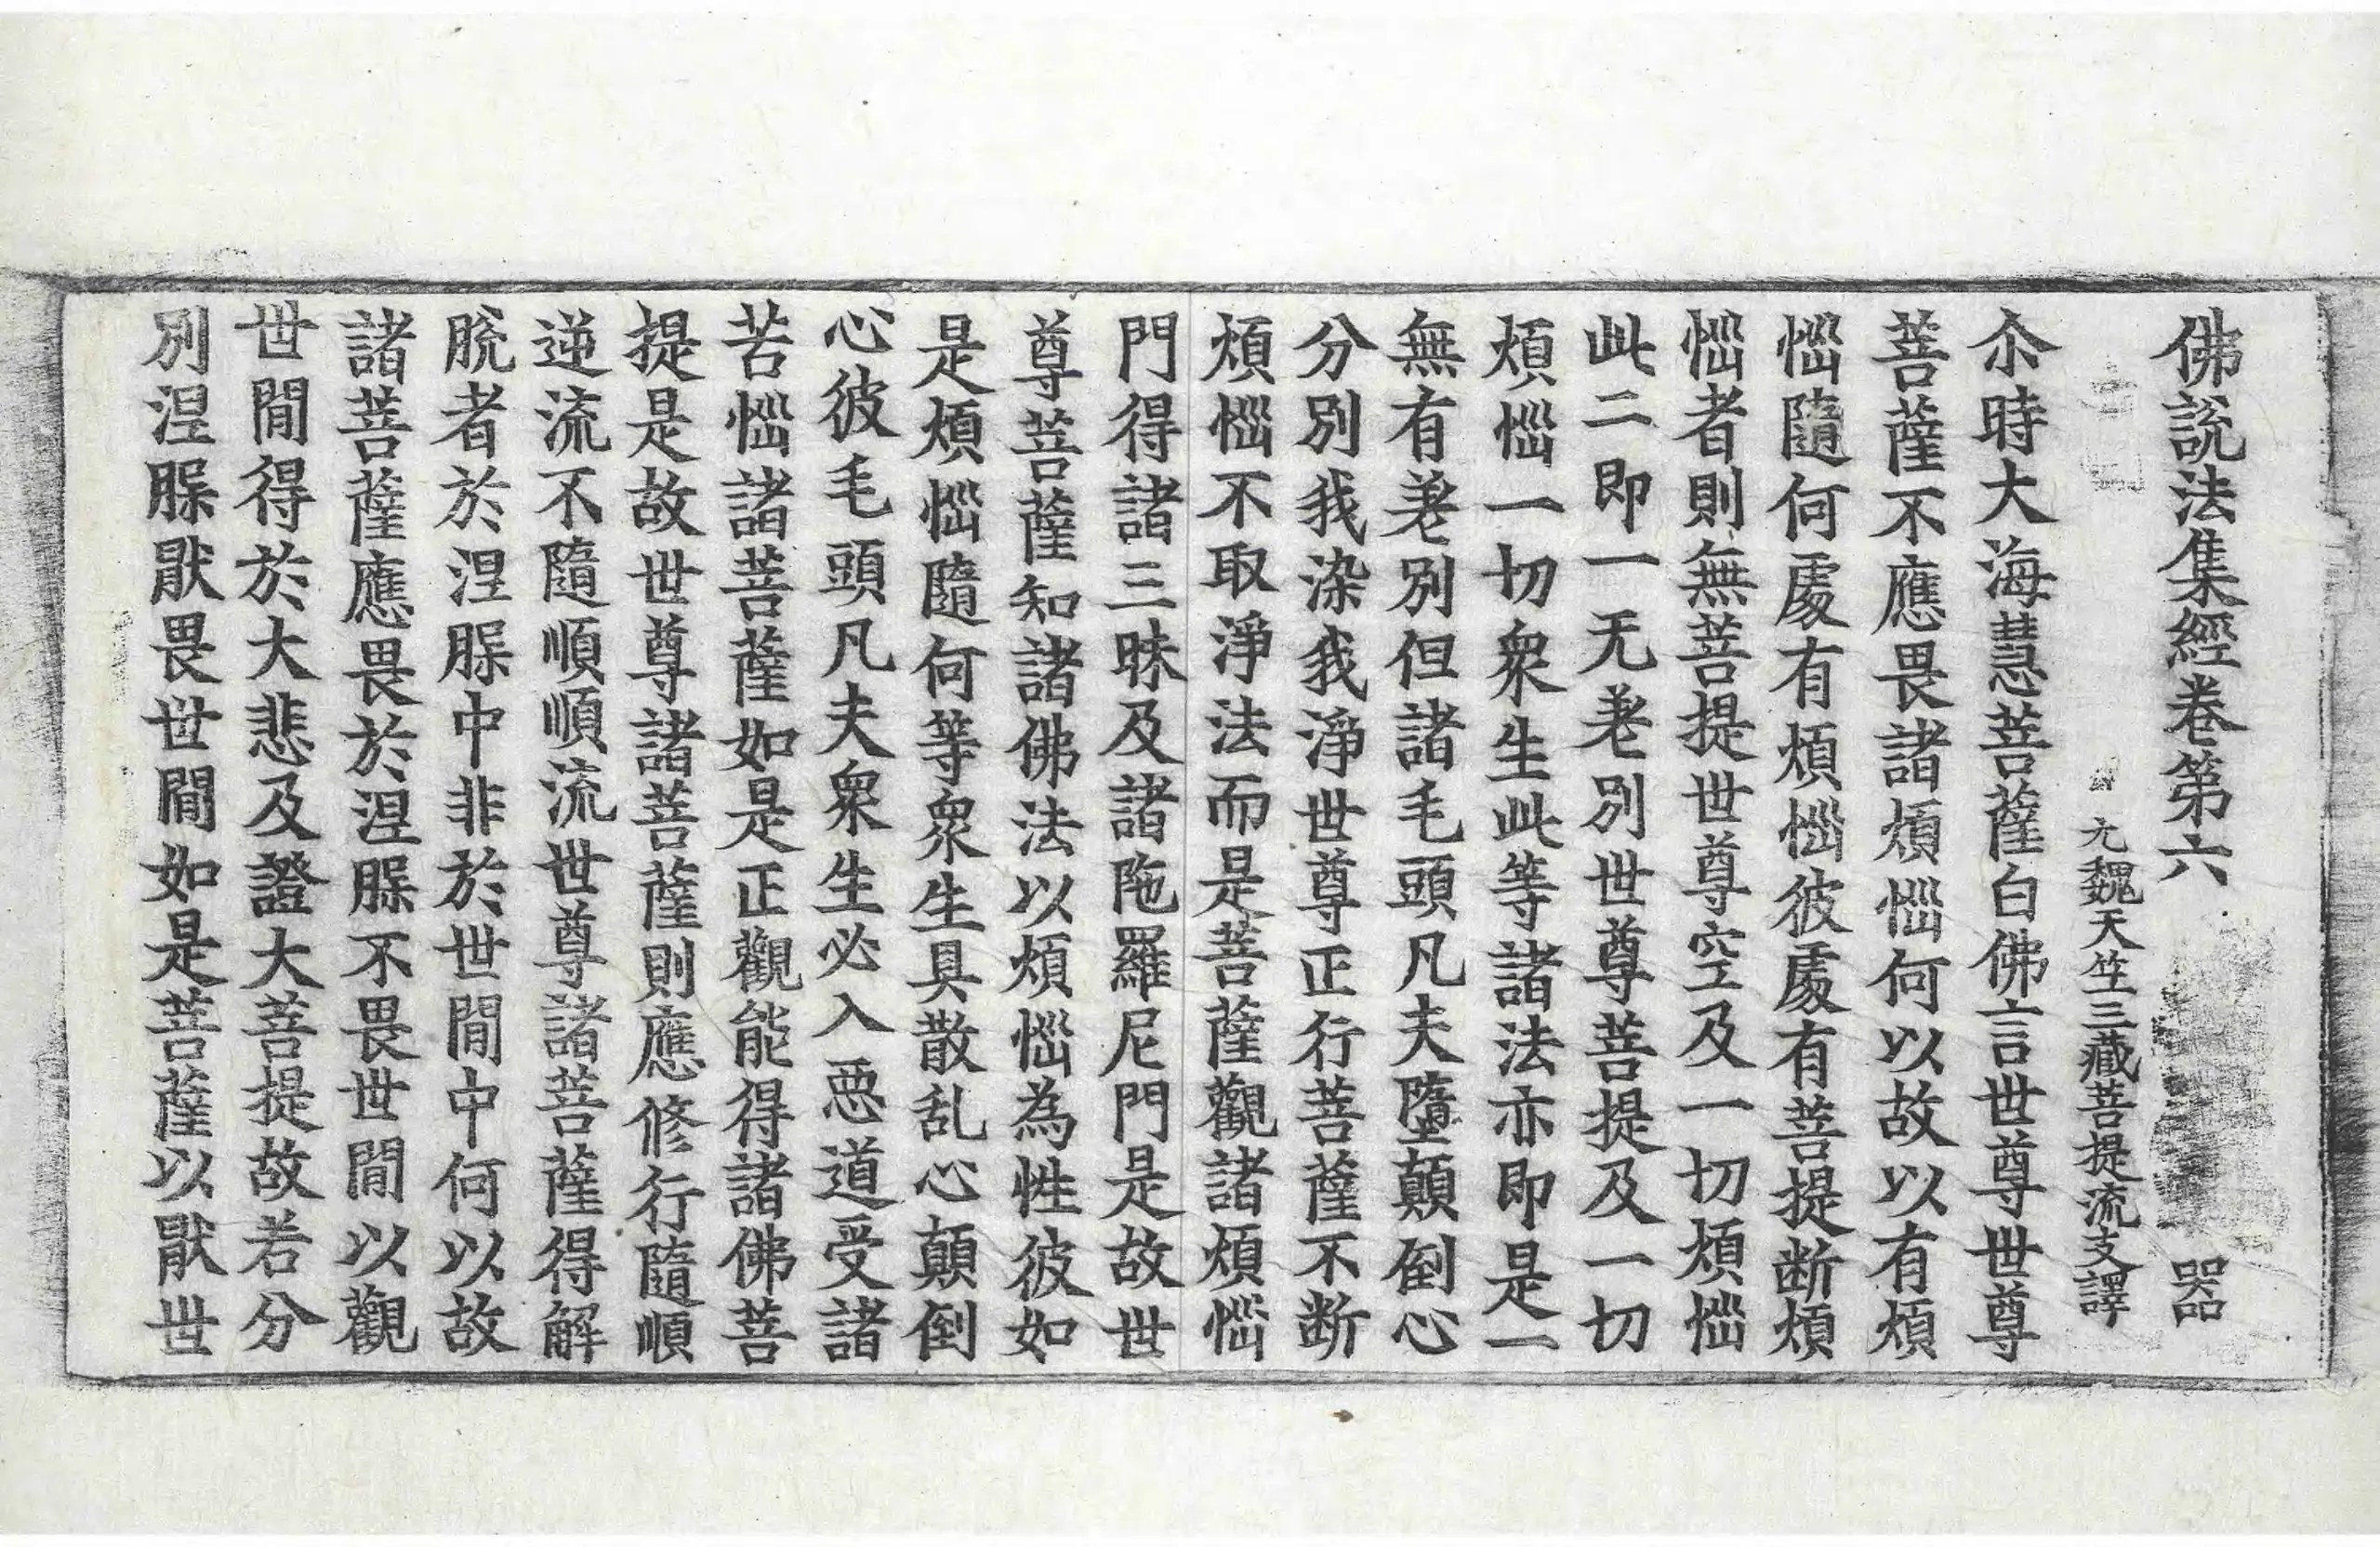 佛說法集經卷第六 器
元魏天竺三藏菩提流支譯
尒時大海慧菩薩白佛言世尊世尊
菩薩不應畏諸煩惱何以故以有煩
惱隨何處有煩惱彼處有菩提断煩
惱者則無菩提世尊空及一切煩惱
此二即一无差別世尊菩提及一切
煩惱一切衆生此等諸法亦即是一
無有差別但諸毛頭凡夫墮顛倒心
分別我染我淨世尊正行菩薩不断
煩惱不取淨法而是菩薩觀諸煩惱
門得諸三昧及諸陁羅尼門是故世
尊菩薩知諸佛法以煩惱為性彼如
是煩惱隨何等衆生具散乱心顛倒
心彼毛頭凡夫衆生必入惡道受諸
苦惱諸菩薩如是正觀能得諸佛菩
提是故世尊諸菩薩則應修行隨順
逆流不隨順順流世尊諸菩薩得解
脫者於涅槃中非於世間中何以故
諸菩薩應畏於涅槃不畏世間以觀
世間得於大悲及證大菩提故若分
別涅槃猒畏世間如是菩薩以猒世